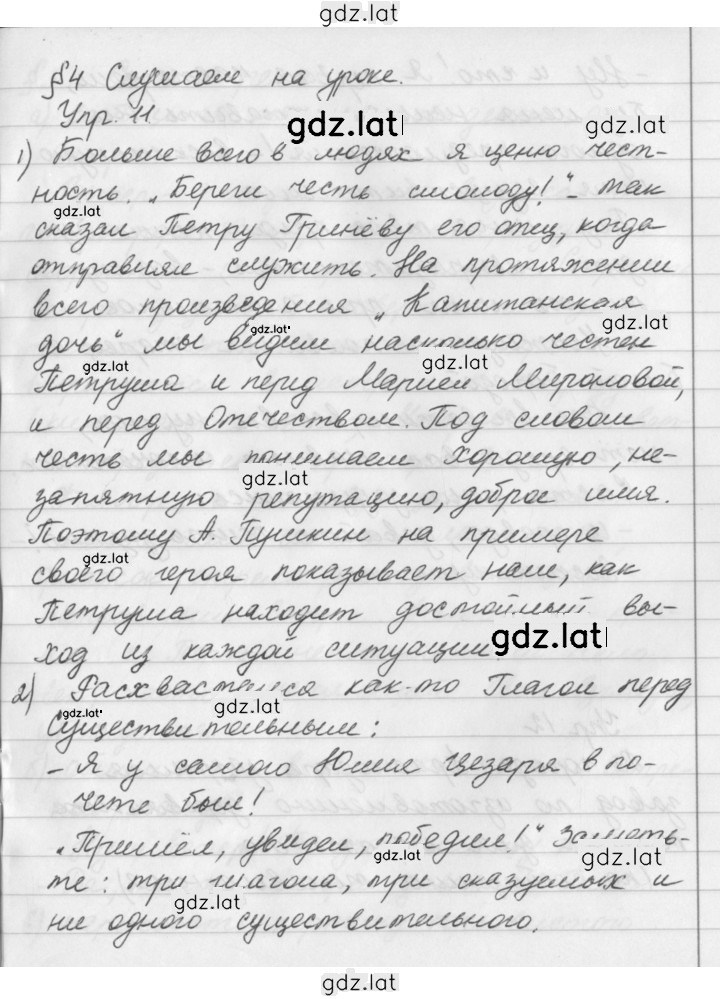 gdz.lat
§4 Слушаем на уроке.
Упр. 11
gdz.lat
1) Больше всего в людях я ценю чест-
ность. „Береги честь смолоду!" - так
gdz.lat
сказал Петру Гринёву его отец, когда
отправлял служить. На протяжении
всего произведения „Капитанская
gdz.lat gdz.lat
дочь" мы видим насколько честен
gdz.lat gdz.lat
Петруша и перед Марией Мироновой,
и перед Отечеством. Под словом
честь мы понимаем хорошую, не-
gdz.lat
запятную репутацию, доброе имя.
Поэтому А. Пушкин на примере
gdz.lat
своего героя показывает нам, как
Петруша находит достойный вы-
ход из каждой ситуации
gdz.lat
2) Расхвастался как-то Глагол перед
gdz.lat gdz.lat
Существительным:
- Я у самого Юлия Цезаря в по-
чете был!
„Пришёл, увидел, победил!" Заметь-
gdz.lat gdz.lat
те: три глагола, три сказуемых и
gdz.lat
ни одного существительного.
gdz.lat